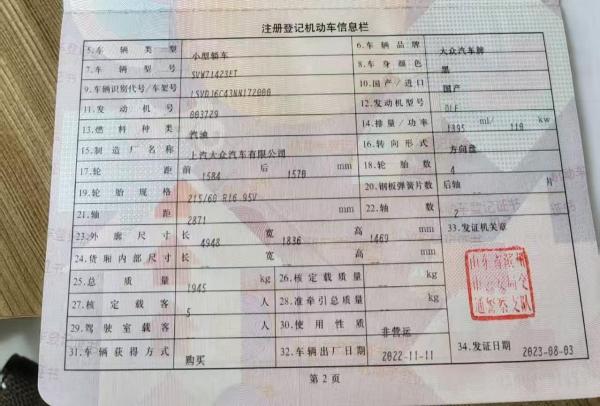 注册登记机动车信息栏
5.车辆类型 小型轿车 6.车辆品牌 大众汽车牌
7.车辆型号 SVW71423FT 8.车身颜色 黑
9.车辆识别代号/车架号 LSVDJ6C43NN172000 10.国产/进口 国产
11.发动机号 003729 12.发动机型号 DLF
13.燃料种类 汽油 14.排量/功率 1395 ml/ 110 kw
15.制造厂名称 上汽大众汽车有限公司 16.转向形式 方向盘
17.轮距 前 1584 后 1570 mm 18.轮胎数 4
19.轮胎规格 215/60 R16 95V 20.钢板弹簧片数 后轴 -- 片
21.轴距 2871 mm 22.轴数 2
23.外廓尺寸 长 4948 宽 1836 高 1469 mm 33.发证机关章
24.货厢内部尺寸 长 -- 宽 -- 高 -- mm
25.总质量 1945 kg 26.核定载质量 -- kg
27.核定载客 5 人 28.准牵引总质量 -- kg
29.驾驶室载客 -- 人 30.使用性质 非营运
31.车辆获得方式 购买 32.车辆出厂日期 2022-11-11 34.发证日期 2023-08-03
山东省滨州
市公安局交
通警察支队
第2页